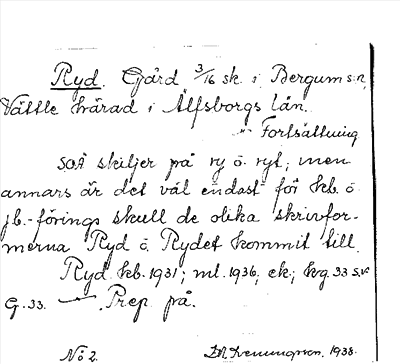 Ryd. Gård 3/16 sk. i Bergum s:n,
Vättle härad i Älfsborgs län.
Fortsättning
SOÄ skiljer på ry ö. ryt; men
annars är det väl endast för kb. ö
jb.-förings skull de olika skrivfor-
merna Ryd ö. Rydet kommit till.
Ryd kb. 1931; ml. 1936, ek; kg. 33 S.V.
G. 33. Prep på.
No 2. 1938.